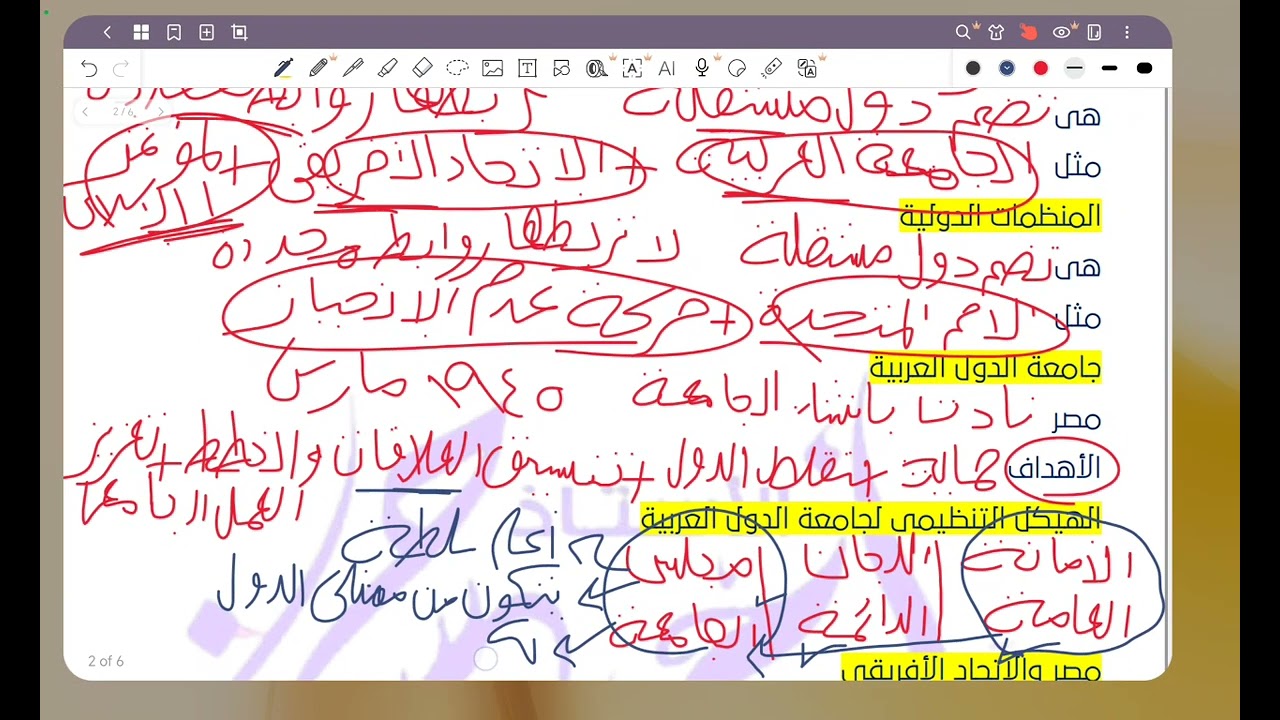 2/6
هى تضم دول مستقلة تربطها روابط
مثل الجامعة العربية + الاتحاد الافريقى + المؤتمر
المنظمات الدولية
هى تضم دول مستقلة لا تربطها روابط محدده
مثل الامم المتحدة + حركة عدم الانحياز
جامعة الدول العربية
مصر نادت بانشاء الجامعة مارس ١٩٤٥
الأهداف + تنسيق العلاقات والخطط + تعزيز
العمل
الهيكل التنظيمى لجامعة الدول العربية
الامانة العامة
اللجان الدائمة
مجلس الجامعة
اعلى سلطة
تتكون من ممثلى الدول
الأستاذ
2 of 6
مصر والاتحاد الأفريقى